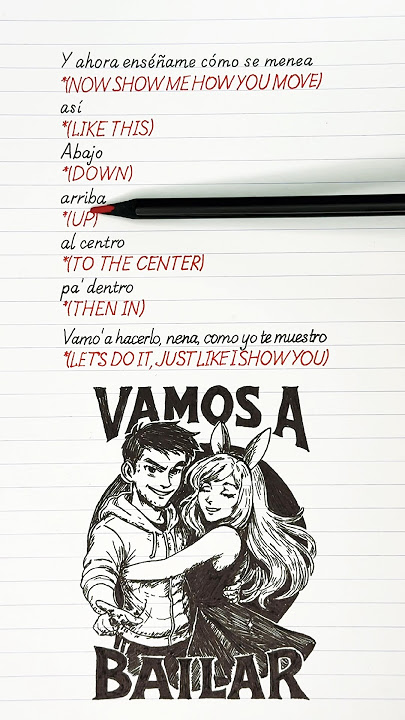 Y ahora enséñame cómo se menea
*(NOW SHOW ME HOW YOU MOVE)
así
*(LIKE THIS)
Abajo
*(DOWN)
arriba
*(UP)
al centro
*(TO THE CENTER)
pa' dentro
*(THEN IN)
Vamo' a hacerlo, nena, como yo te muestro
*(LET'S DO IT, JUST LIKE I SHOW YOU)
VAMOS A
BAILAR